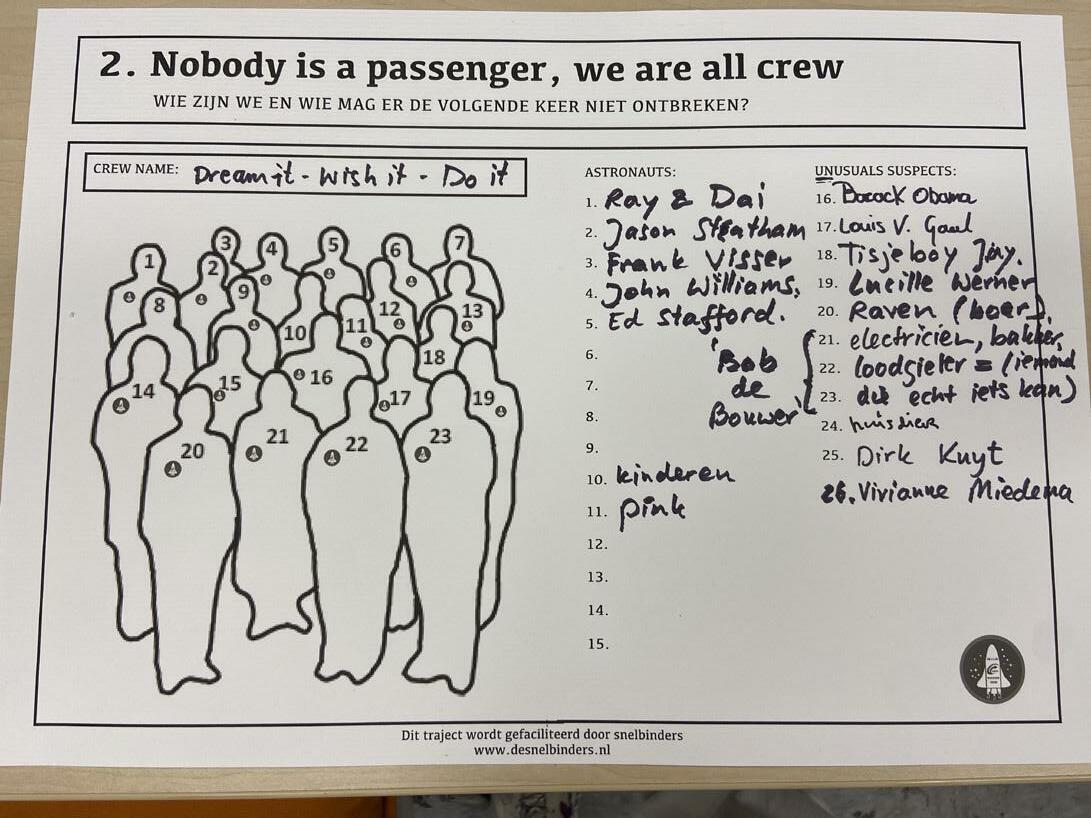 2. Nobody is a passenger, we are all crew
WIE ZIJN WE EN WIE MAG ER DE VOLGENDE KEER NIET ONTBREKEN?
CREW NAME: Dream it - Wish it - Do it
1
2
3
4
5
6
7
8
9
10
11
12
13
14
15
16
17
18
19
20
21
22
23
ASTRONAUTS:
1. Ray & Dai
2. Jason Steatham
3. Frank Visser
4. John Williams,
5. Ed Stafford.
6.
7.
8.
9.
10. kinderen
11. Pink
12.
13.
14.
15.
Bob
de
Bouwer
UNUSUALS SUSPECTS:
16. Barack Obama
17. Louis V. Gaal
18. Tisjeboy Jay.
19. Lucille Werner
20. Raven (boer),
21. electricien, bakker,
22. loodgieter = (iemand
23. die echt iets kan)
24. huisdier
25. Dirk Kuyt
26. Vivianne Miedema
Dit traject wordt gefaciliteerd door snelbinders
www.desnelbinders.nl